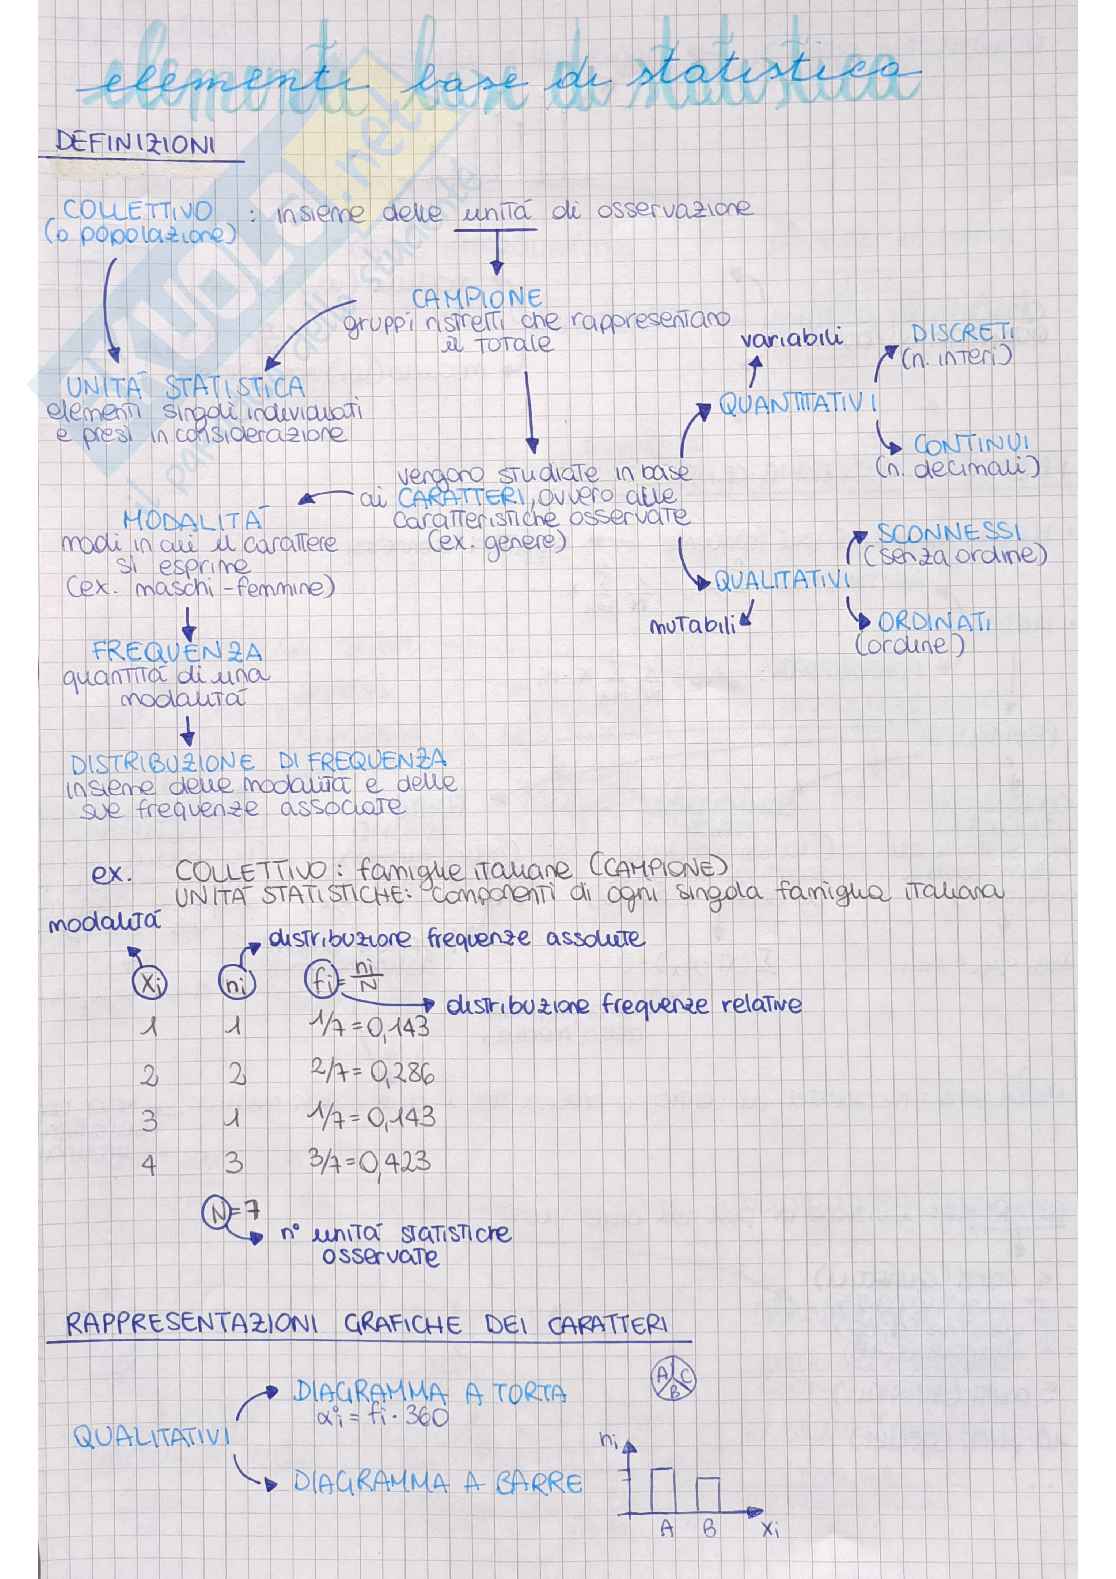 elementi base di statistica
DEFINIZIONI
COLLETTIVO : insieme delle unità di osservazione
(o popolazione)
CAMPIONE
gruppi ristretti che rappresentano
il totale
UNITÀ STATISTICA
elementi singoli individuati
e presi in considerazione
variabili
DISCRETI
(n. interi)
QUANTITATIVI
CONTINUI
(n. decimali)
vengono studiate in base
ai CARATTERI, ovvero alle
caratteristiche osservate
(ex. genere)
MODALITÀ
modi in cui il carattere
si esprime
(ex. maschi-femmine)
SCONNESSI
(senza ordine)
QUALITATIVI
mutabili
ORDINATI
(ordine)
FREQUENZA
quantità di una
modalità
DISTRIBUZIONE DI FREQUENZA
insieme delle modalità e delle
sue frequenze associate
ex. COLLETTIVO: famiglie italiane (CAMPIONE)
UNITÀ STATISTICHE: componenti di ogni singola famiglia italiana
modalità
distribuzione frequenze assolute
xi ni fi = ni/N
distribuzione frequenze relative
1 1 1/7=0,143
2 2 2/7=0,286
3 1 1/7=0,143
4 3 3/7=0,423
N=7
n° unità statistiche
osservate
RAPPRESENTAZIONI GRAFICHE DEI CARATTERI
DIAGRAMMA A TORTA
α°i = fi · 360
A C
B
QUALITATIVI
DIAGRAMMA A BARRE
ni
A B xi
SKUOLA.net